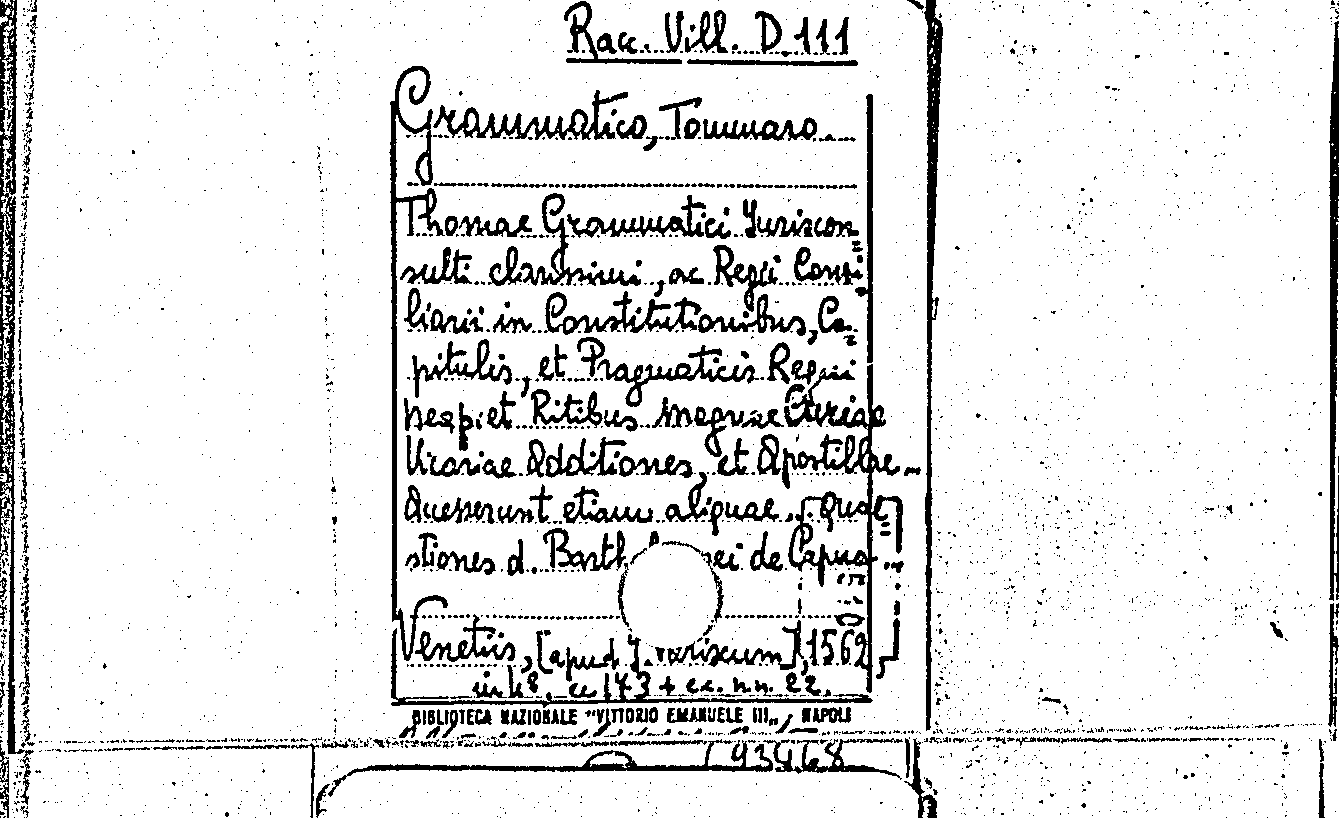 Racc. Vill. D.111
Grammatico, Tommaso.
Thomae Grammatici Juriscon=
sulti clarissimi, ac Regii Consi=
liarii in Constitutionibus, Ca=
pitulis, et Pragmaticis Regni
neap. et Ritibus Magnae Curiae
Vicariae Additiones, et Apostillae...
Accesserunt etiam aliquae... Quae=
stiones d. Barth ei de Capua...
Venetiis, [apud J. variscum], 1562
in 8°. cc 173 + cc. n.n. 22.
BIBLIOTECA NAZIONALE "VITTORIO EMANUELE III„ NAPOLI